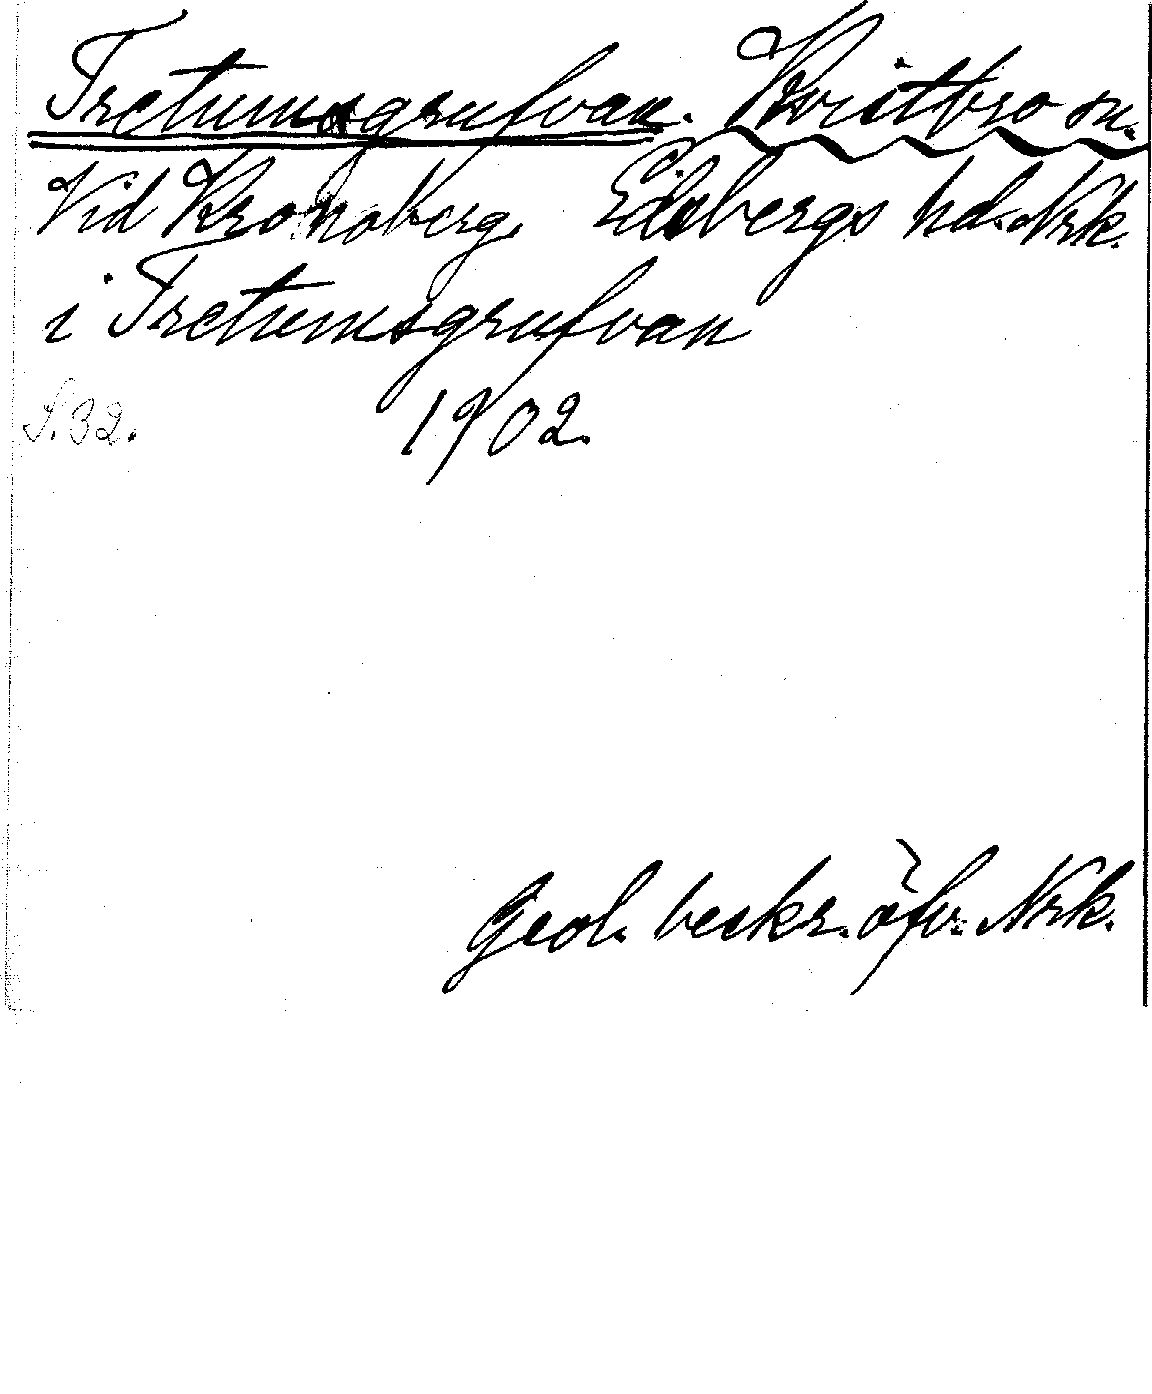 Tretumsgrufvan. Kvistbro sn.
Vid Kronoberg. Edsbergs hd. Nrk.
i Tretumsgrufvan
S. 32. 1902.
Geol. beskr. öfv. Nrk.